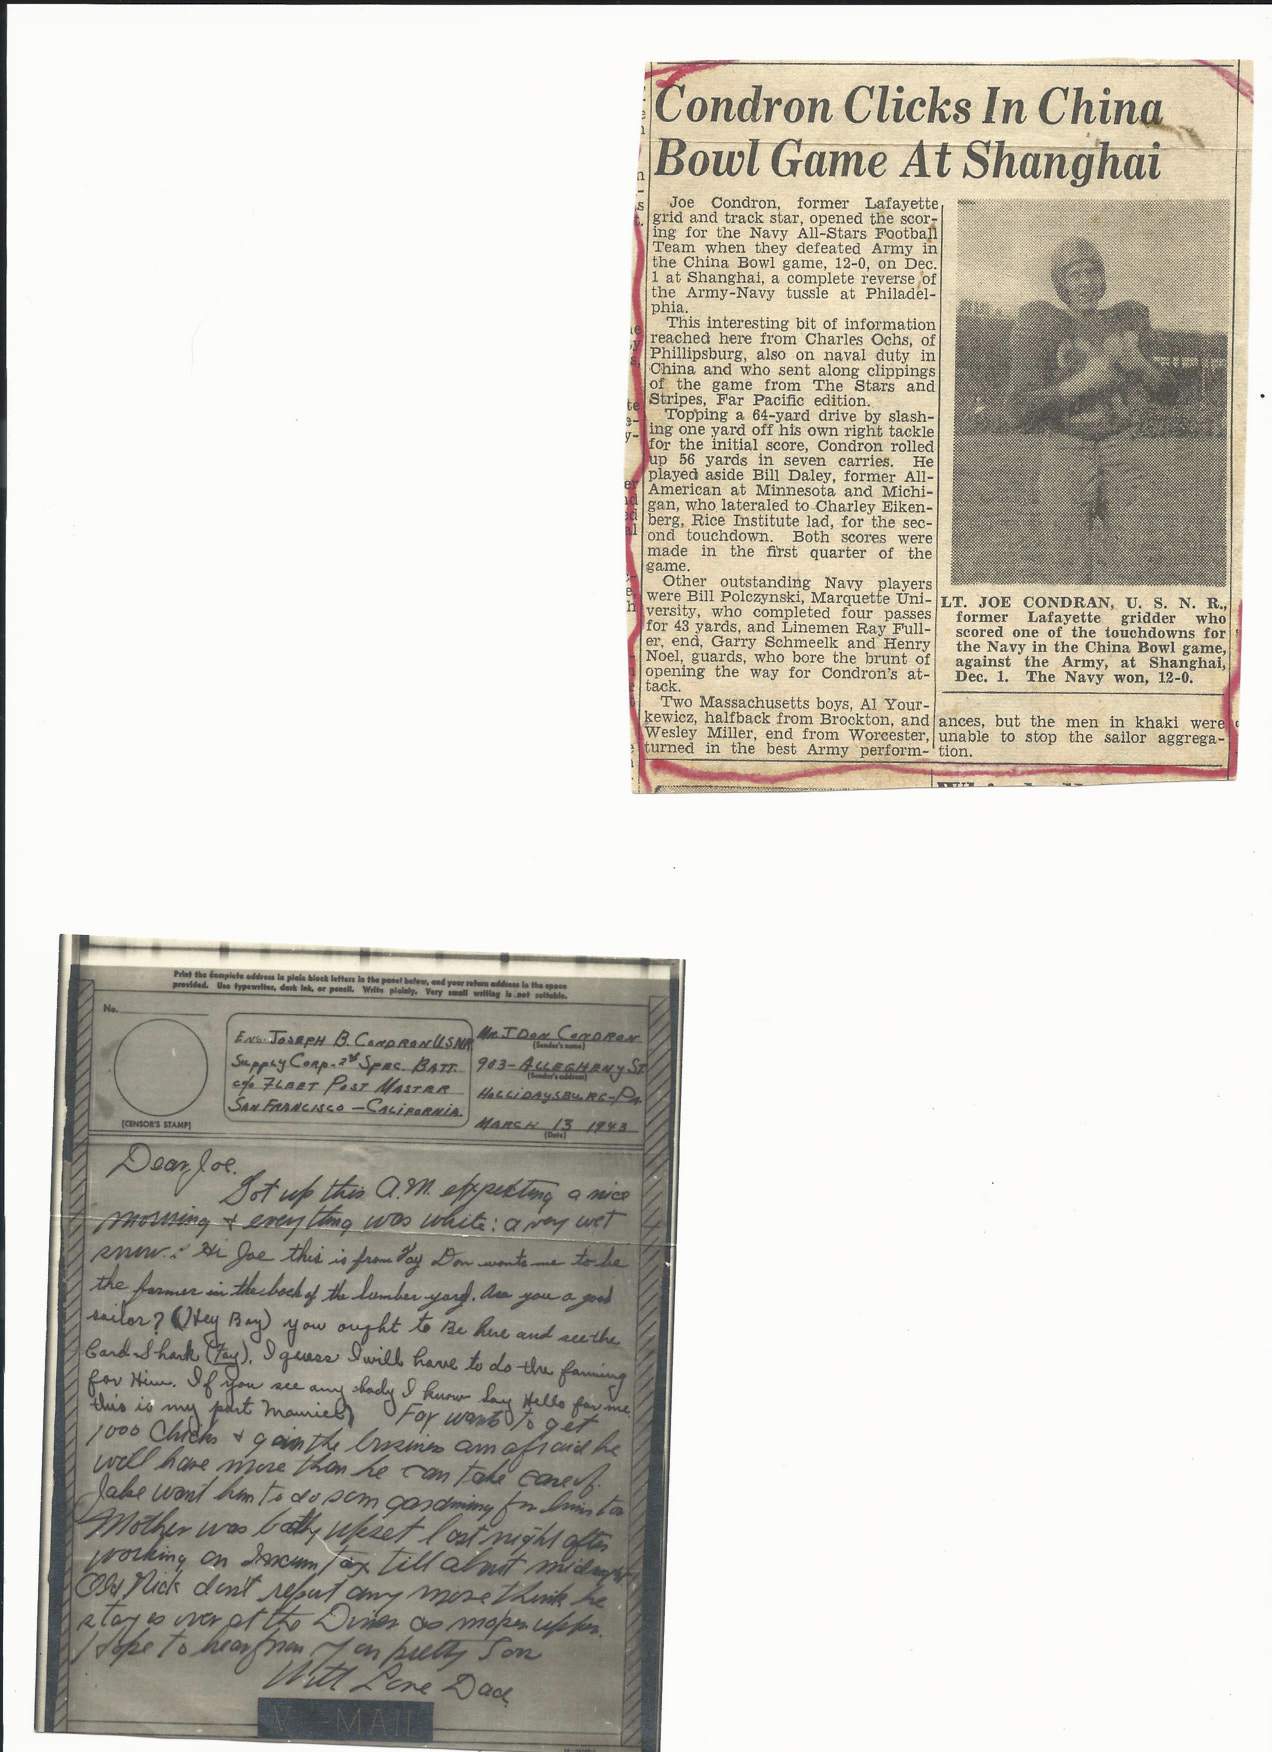 Condron Clicks In China
Bowl Game At Shanghai
Joe Condron, former Lafayette
grid and track star, opened the scor-
ing for the Navy All-Stars Football
Team when they defeated Army in
the China Bowl game, 12-0, on Dec.
1 at Shanghai, a complete reverse of
the Army-Navy tussle at Philadel-
phia.
This interesting bit of information
reached here from Charles Ochs, of
Phillipsburg, also on naval duty in
China and who sent along clippings
of the game from The Stars and
Stripes, Far Pacific edition.
Topping a 64-yard drive by slash-
ing one yard off his own right tackle
for the initial score, Condron rolled
up 56 yards in seven carries. He
played aside Bill Daley, former All-
American at Minnesota and Michi-
gan, who lateraled to Charley Eiken-
berg, Rice Institute lad, for the sec-
ond touchdown. Both scores were
made in the first quarter of the
game.
Other outstanding Navy players
were Bill Polczynski, Marquette Uni-
versity, who completed four passes
for 43 yards, and Linemen Ray Full-
er, end, Garry Schmeelk and Henry
Noel, guards, who bore the brunt of
opening the way for Condron's at-
tack.
Two Massachusetts boys, Al Your-
kewicz, halfback from Brockton, and
Wesley Miller, end from Worcester,
turned in the best Army perform-
LT. JOE CONDRAN, U. S. N. R.,
former Lafayette gridder who
scored one of the touchdowns for
the Navy in the China Bowl game,
against the Army, at Shanghai,
Dec. 1. The Navy won, 12-0.
ances, but the men in khaki were
unable to stop the sailor aggrega-
tion.
Print the complete address in plain block letters in the panel below, and your return address in the space
provided. Use typewriter, dark ink, or pencil. Write plainly. Very small writing is not suitable.
No.
(CENSOR'S STAMP)
ENS. JOSEPH B. CONDRON USNR
Supply Corp. 2d Spec. BATT.
c/o FLEET POST MASTER
SAN FRANCISCO – CALIFORNIA.
Mr. J DON CONDRON
(Sender's name)
903 – ALLEGHENY ST
(Sender's address)
HOLLIDAYSBURG – PA.
MARCH 13 1943
(Date)
Dear Joe.
Got up this A.M. expecting a nice
morning & everything was white: a very wet
snow. Hi Joe this is from Fay Don wants me to be
the farmer in the back of the lumber yard. Are you a good
sailor? (Hey Bay) you ought to Be here and see the
Card Shark (Fay). I guess I will have to do the farming
for Him. If you see any body I know Say Hello for me.
this is my part Fay wants to get
1000 Chicks & go in the business am afraid he
will have more than he can take care of.
Jake want him to do som gardning for him too
Mother was badly upset last night after
working on Incum Tax till about midnight
Old Nick don't report any more think he
stays over at the Diner as
Hope to hear from you pretty Son
With Love Dad.
V – MAIL